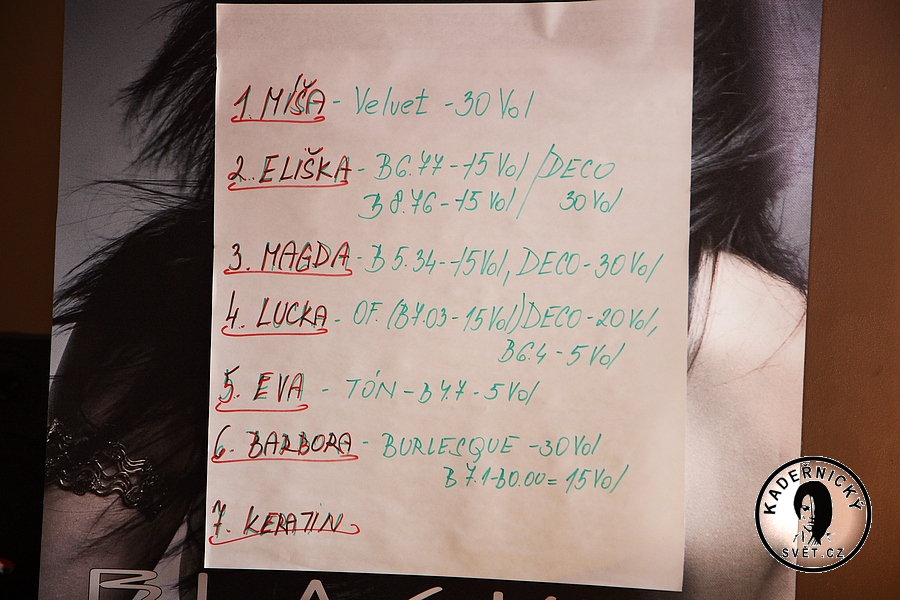 1. MÍŠA - Velvet - 30 Vol
2. ELIŠKA - B6.77 - 15 Vol / DECO
B 8.76 - 15 Vol / 30 Vol
3. MAGDA - B 5.34 - 15 Vol, DECO - 30 Vol
4. LUCKA - OF. (B7.03 - 15 Vol) DECO - 20 Vol,
B6.4 - 5 Vol
5. EVA - TÓN - B 4.7 - 5 Vol
6. BARBORA - BURLESQUE - 30 Vol
B 7.1 - B0.00 = 15 Vol
7. KERATIN
BLACK
KADEŘNICKÝ
SVĚT.CZ